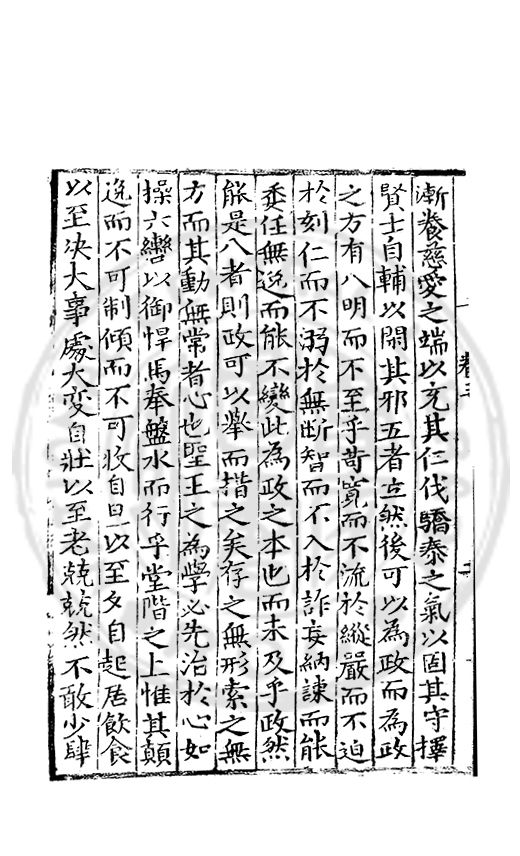 漸養慈愛之端以充其仁伐驕泰之氣以固其守擇
賢士自輔以閑其邪五者立然後可以為政而為政
之方有八明而不至乎苛寬而不流於縱嚴而不迫
於刻仁而不溺於無斷智而不入於詐妄納諫而能
委任無逸而能不變此為政之本也而未及乎政然
能是八者則政可以舉而措之矣存之無形索之無
方而其動無常者心也聖王之為學必先治於心如
操六轡以御悍馬奉盤水而行乎堂階之上惟其顛
逸而不可制傾而不可收自旦以至夕自起居飲食
以至决大事處大变自壯以至老兢兢然不敢少肆
卷三